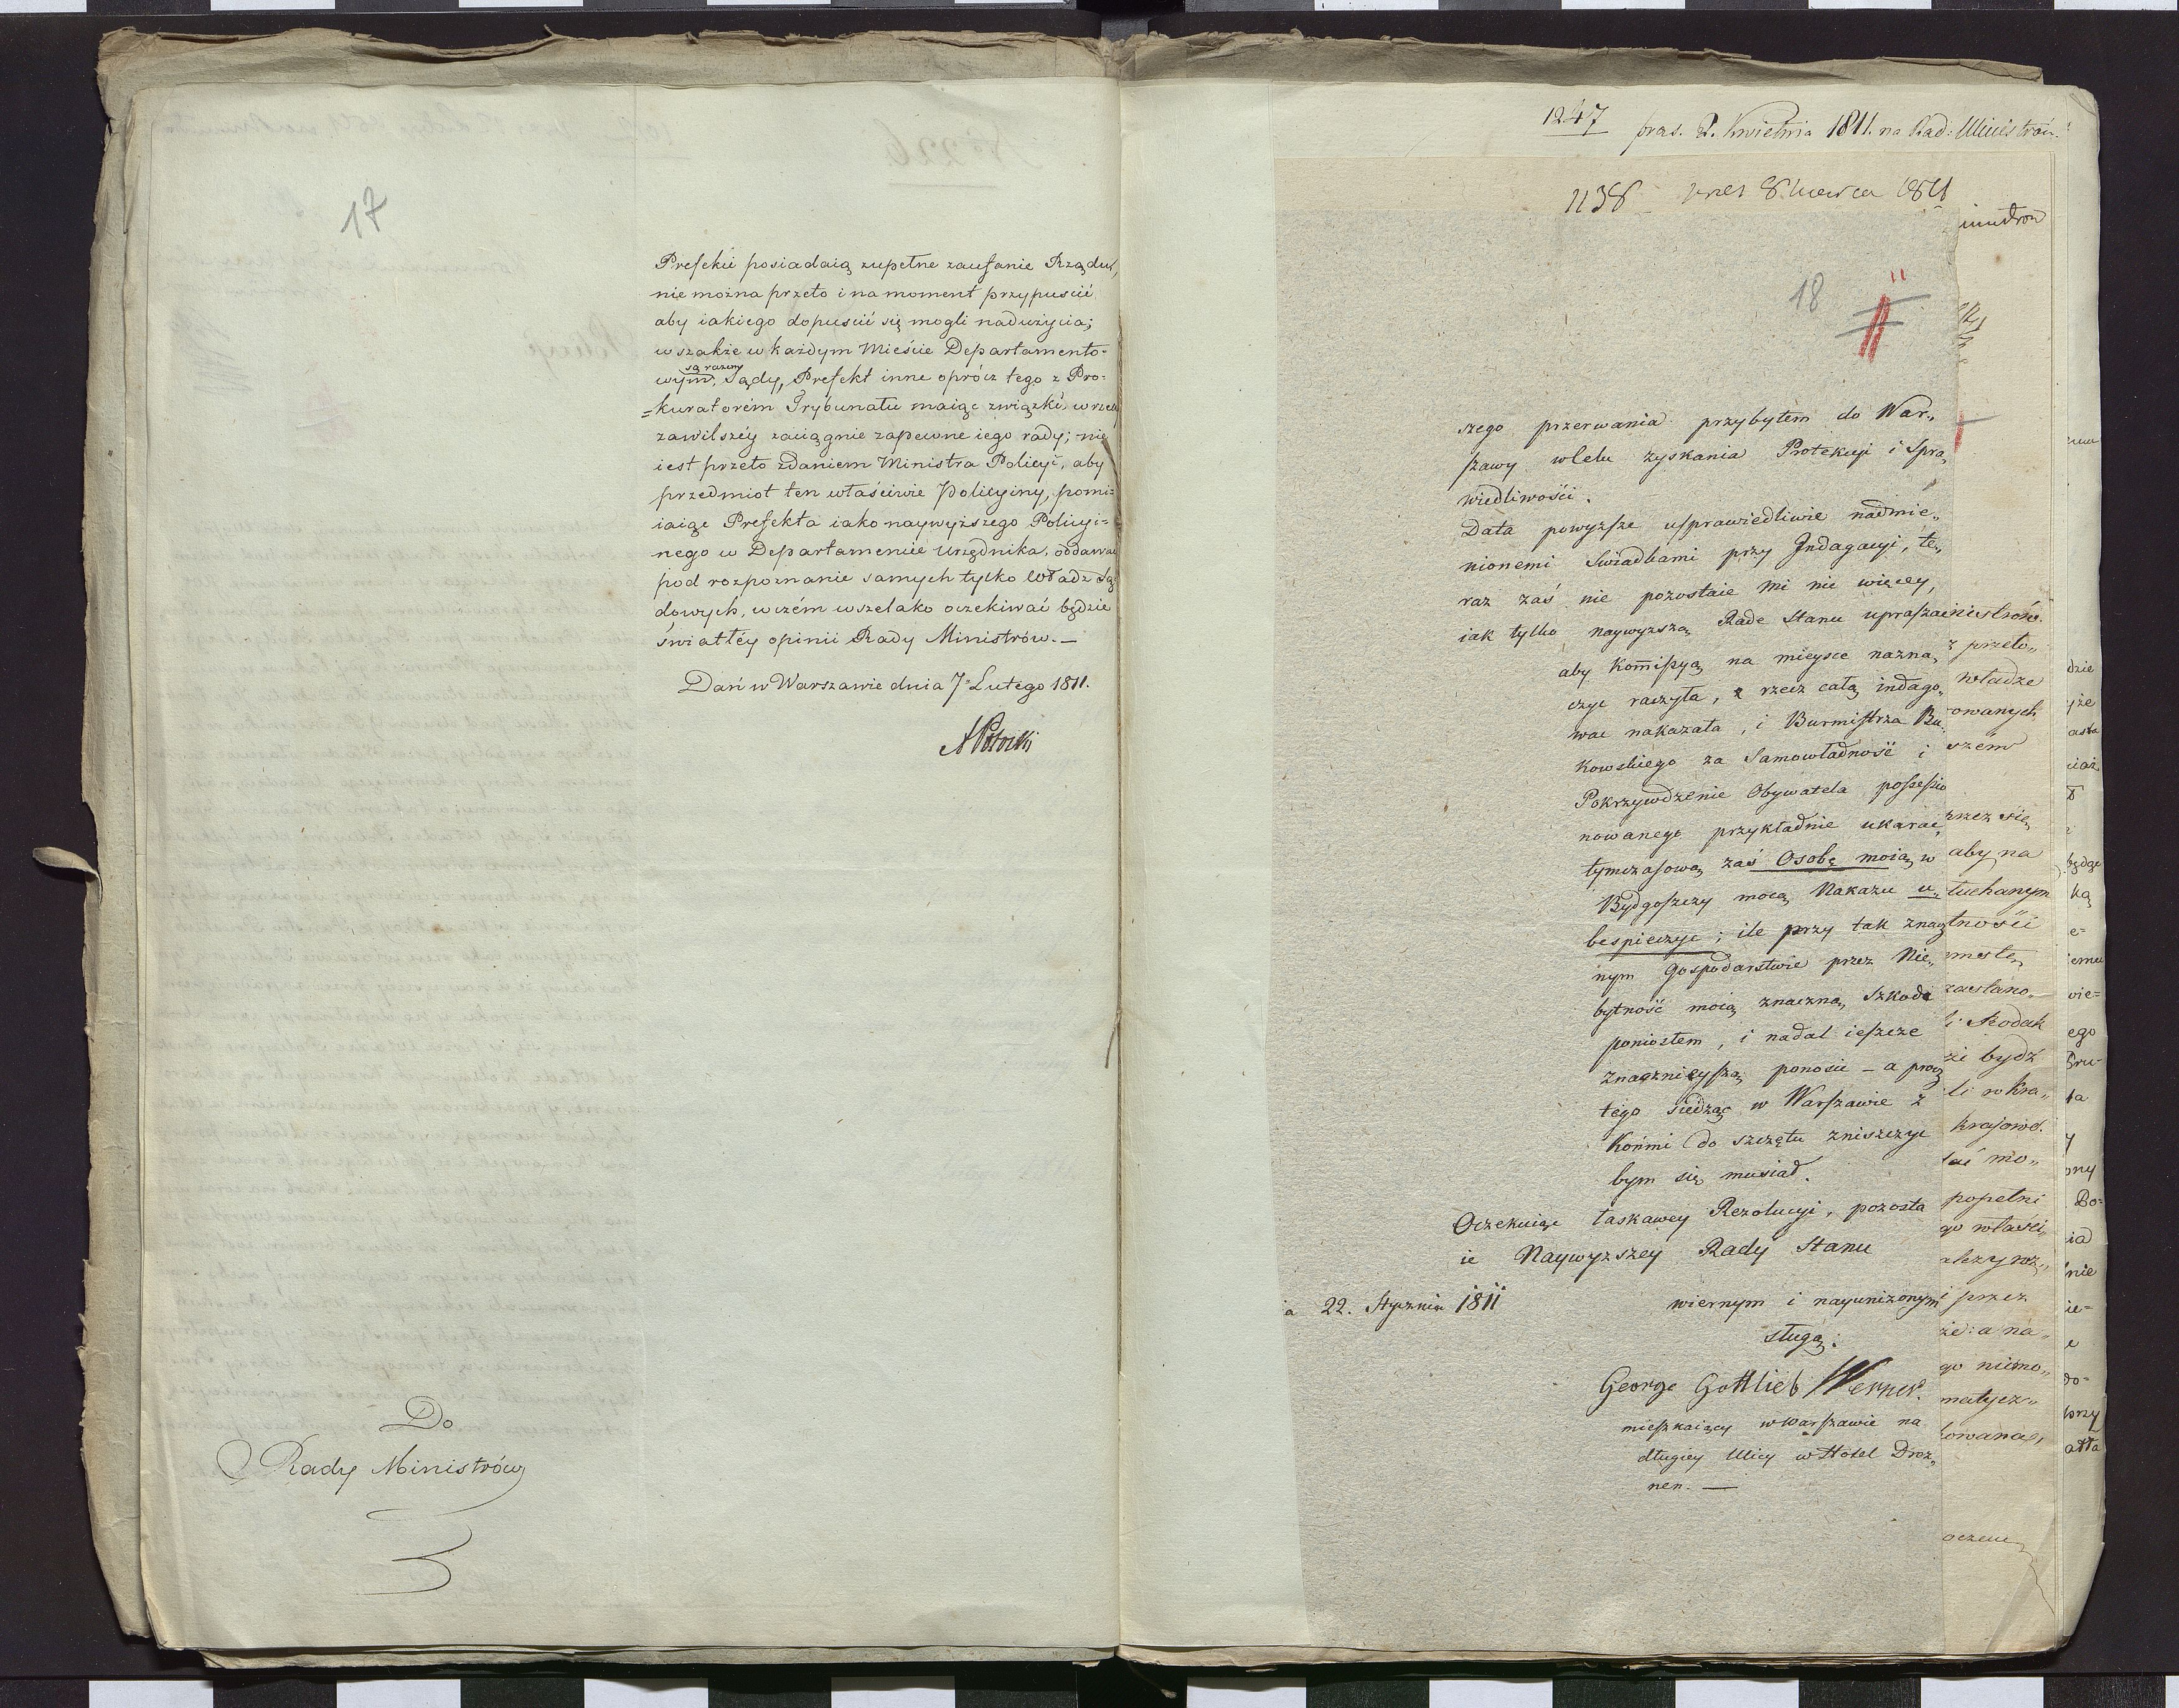 17
Prefekci posiadaią zupełne zaufanie Rządu,
nie można przeto i na moment przypuscić
aby iakiego dopuscić się mogli nadużycia;
wszakże w każdym Mieście Departamento=
są razem
wym, Sądy, Prefekt inne oprócz tego z Pro=
=kuratorém Trybunału maiąc związki w rzeczy
zawilszéy zaciągnie zapewne iego rady; nie
iest przeto zdaniem Ministra Policyi, aby
przedmiot ten właściwie Policyiny, pomi=
iaiąc Prefekta iako naywyższego Policyi=
nego w Departamencie Urzędnika, oddawać
pod rozpoznanie samych tylko Władz Są
dowych, w czém wszelako oczekiwać będzie
światłéy opinii Rady Ministrów. —
Dań w Warszawie dnia 7 Lutego 1811.
APotocki
Do
Rady Ministrów
1247 pras. 2. Kwietnia 1811. na Rad: Ministrów.
1138 Marca 1811
18
szego przerwania przybyłem do War„
szawy wCelu zyskania Protekcyi i Spra„
wiedliwości.
Data powyższe usprawiedliwie nadmie„
nionemi Swiadkami przy Indagacyi, te„
raz zaś nie pozostaie mi nic więcey,
iak tylko naywyższą Rade Stanu upraszać
aby Kommissyą na mieysce nazna„
czyc raczyła, rzecz całą indago„
wac nakazała, i Burmistrza Bu„
kowskiego za Samowładność i
Pokrzywdzenie Obywatela possessio
nowanego przykładnie ukarać,
tymczasową zaś Osobę moią w
Bydgoszczy mocą Nakazu u„
bespieczyc; ile przy tak znacz
nym Gospodarstwie przez Nie„
bytność moią znaczną Szkodę
poniosłem, i nadal ieszcze
znacznieyszą ponosić — a procz
tego siedząc w Warszawie z
Końmi do szczętu zniszczyc
bym się musiał.
Oczekuiąc łaskawey Rezolucyi, pozosta
ie Naywyzszey Rady Stanu
ia 22. Stycznia 1811
wiernym i nayunizonym
sługą:
George Gottlieb Werner.
mieszkaiący w Warszawie na
długiey Ulicy w Hotel Drez„
nen. —
nistrów.
z przeło„
władze
owanych
szém
przez się
aby na
łuchanym
tności
zastano„
i Szkodęk
zi bydź
li w kra„
krajowe.
ać mo„
popełni
go właści„
ależy roz„
i przez
że: a na„
go niemo„
matycz„
kowana,
dzie
yże
asta
ciaż
będąc
ką
e=
iemu
wie=
ego
Gru-
ta
y
ony
Do=
ia
nie
ie=
e
do=
przy
atła